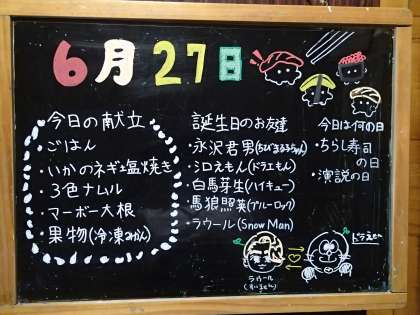 6月27日
今日の献立
・ごはん
・いかのネギ塩焼き
・3色ナムル
・マーボー大根
・果物(冷凍みかん)
誕生日のお友達
・永沢君男(ちびまる子ちゃん)
・シロえもん(ドラえもん)
・白馬芽生(ハイキュー)
・馬狼照英(ブルーロック)
・ラウール(Snow Man)
今日は何の日
・ちらし寿司の日
・演説の日
ラウール
ドラえもん